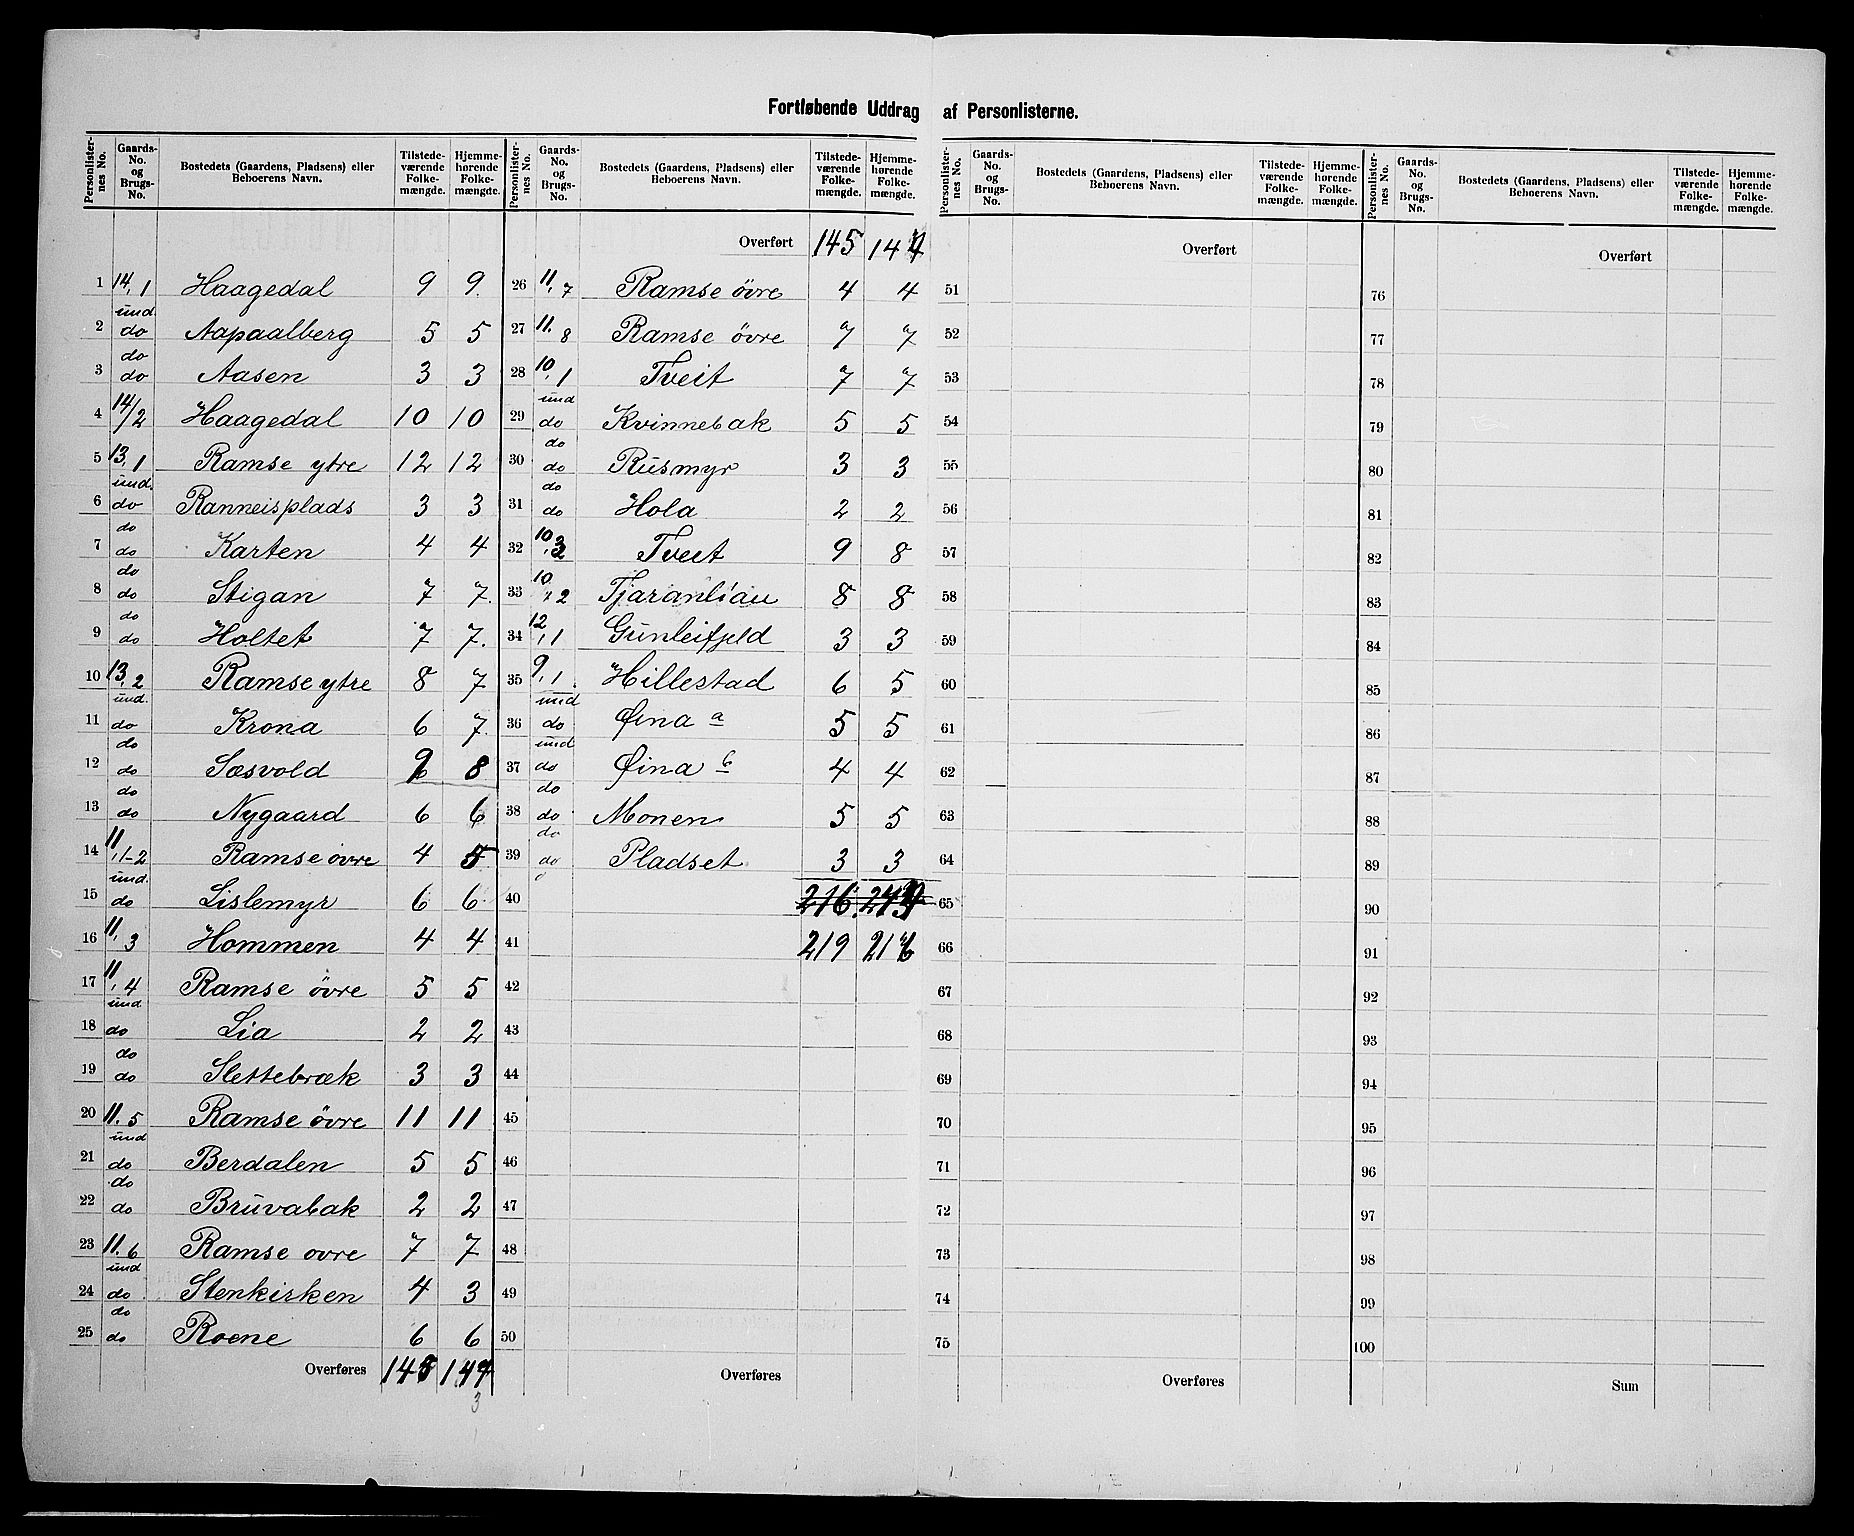 Fortløbende Uddrag af Personlisterne.
Personlister-nes No. Gaards-No. og Brugs-No. Bostedets (Gaardens, Pladsens) eller Beboerens Navn. Tilstede-værende Folke-mængde. Hjemme-hørende Folke-mængde.
1 14,1 Haagedal 9 9
2 und. do Aapaalberg 5 5
3 do do Aasen 3 3
4 14/2 Haagedal 10 10
5 13,1 Ramse ytre 12 12
6 und. do Ranneisplads 3 3
7 do do Karten 4 4
8 do do Stigan 7 7
9 do do Holtet 7 7
10 13,2 Ramse ytre 8 7
11 und. do Krona 6 7
12 do do Sæsvold 8
13 do do Nygaard 6 6
14 11,1-2 Ramse øvre 4 5
15 und. do Lislemyr 6 6
16 11,3 Hommen 4 4
17 11,4 Ramse övre 5 5
18 und do Lia 2 2
19 do do Slettebræk 3 3
20 11.5 Ramse övre 11 11
21 und do Berdalen 5 5
22 do do Bruvabak 2 2
23 11.6 Ramse ovre 7 7
24 und do Stenkirken 4 3
25 do do Roene 6 6
Overføres 145 144
3
Personlister-nes No. Gaards-No. og Brugs-No. Bostedets (Gaardens, Pladsens) eller Beboerens Navn. Tilstede-værende Folke-mængde. Hjemme-hørende Folke-mængde.
Overført 145 144
26 11,7 Ramse övre 4 4
27 11.8 Ramse övre 7 7
28 10,1 Tveit 7 7
29 und do Kvinnebak 5 5
30 do do Rusmyr 3 3
31 do do Hola 2 2
32 10,3 Tveit 9 8
33 10,2 Tjaranliau 8 8
34 12,1 Gunleifjeld 3 3
35 9,1 Hillestad 6 5
36 und do Øina a 5 5
37 und do Øina b 4 4
38 do do Monen 5 5
39 do do Pladset 3 3
40 216
41 219 216
42
43
44
45
46
47
48
49
50
Overføres
Personlister-nes No. Gaards-No. og Brugs-No. Bostedets (Gaardens, Pladsens) eller Beboerens Navn. Tilstede-værende Folke-mængde. Hjemme-hørende Folke-mængde.
Overført
51
52
53
54
55
56
57
58
59
60
61
62
63
64
65
66
67
68
69
70
71
72
73
74
75
Overføres
Personlister-nes No. Gaards-No. og Brugs-No. Bostedets (Gaardens, Pladsens) eller Beboerens Navn. Tilstede-værende Folke-mængde. Hjemme-hørende Folke-mængde.
Overført
76
77
78
79
80
81
82
83
84
85
86
87
88
89
90
91
92
93
94
95
96
97
98
99
100
Sum